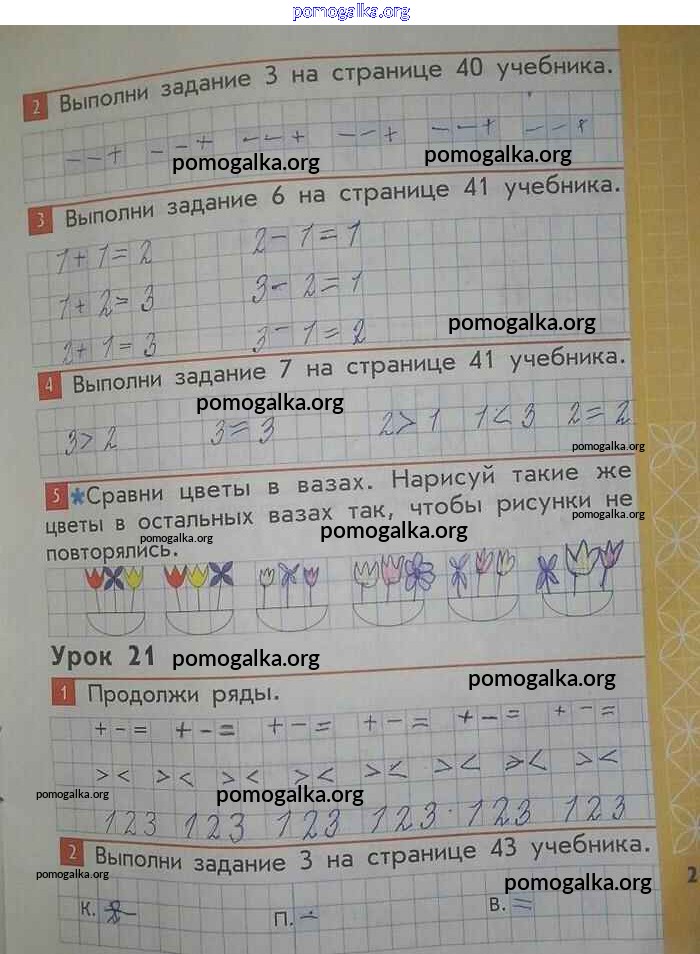 pomogalka.org
2 Выполни задание 3 на странице 40 учебника.
- - + - - + - - + - - + - - + - - +
pomogalka.org pomogalka.org
3 Выполни задание 6 на странице 41 учебника.
1+1=2 2-1=1
1+2=3 3-2=1
2+1=3 3-1=2
pomogalka.org
4 Выполни задание 7 на странице 41 учебника.
pomogalka.org
3>2 3=3 2>1 1<3 2=2
pomogalka.org
5 *Сравни цветы в вазах. Нарисуй такие же
цветы в остальных вазах так, чтобы рисунки не
pomogalka.org pomogalka.org pomogalka.org
повторялись.
Урок 21 pomogalka.org
pomogalka.org
1 Продолжи ряды.
+-= +-= +-= +-= +-= +-=
>< >< >< >< >< >< >< ><
pomogalka.org pomogalka.org
123 123 123 123 123 123
2 Выполни задание 3 на странице 43 учебника.
pomogalka.org pomogalka.org
2
К. П. В. =